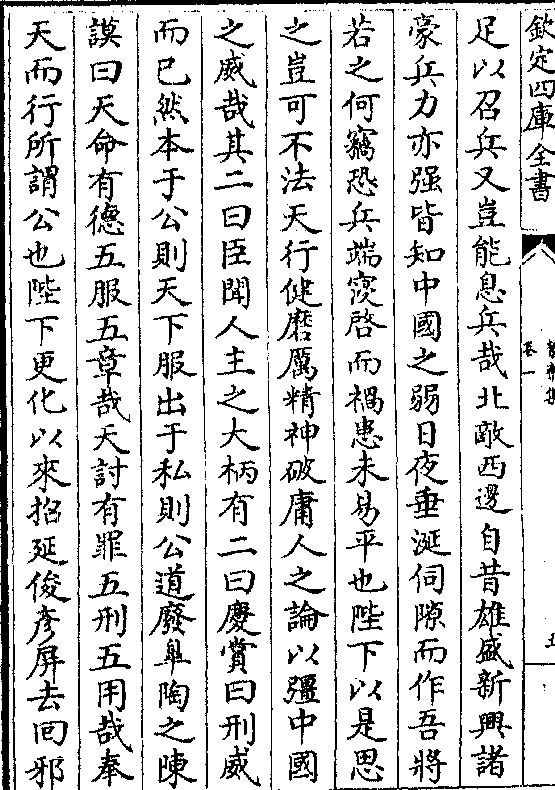 欽定四庫全書
卷一
足以召兵又豈能息兵哉北敵西邊自昔雄盛新興諸
豪兵力亦强皆知中國之弱日夜垂涎伺隙而作吾將
若之何竊恐兵端寖啓而禍患未易平也陛下以是思
之豈可不法天行健磨厲精神破庸人之論以彊中國
之威哉其二曰臣聞人主之大柄有二曰慶賞曰刑威
而已然本于公則天下服出于私則公道廢臯陶之陳
謨曰天命有德五服五章哉天討有罪五刑五用哉奉
天而行所謂公也陛下更化以來招延俊彥屏去回邪